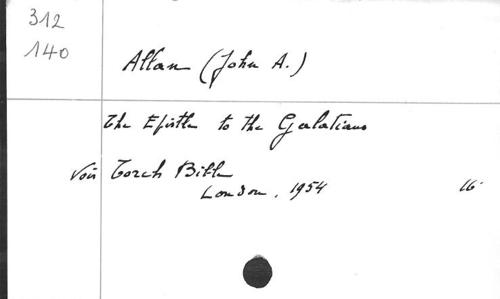 312
140
Allan (John A.)
The Epistle to the Galatians
Voir Torch Bible
London, 1954 16°